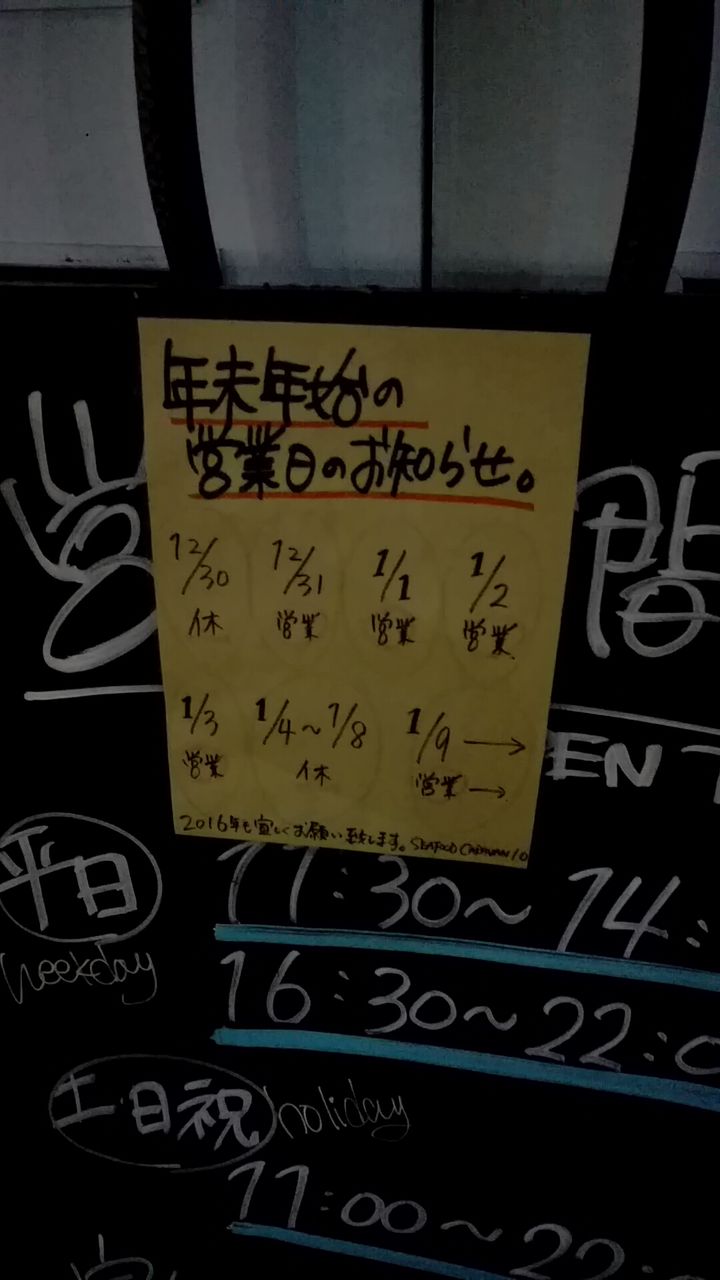 年末年始の
営業日のお知らせ。
12/30 12/31 1/1 1/2
休 営業 営業 営業
1/3 1/4~1/8 1/9 →
営業 休 営業 →
2016年も宜しくお願い致します。SEAFOOD CARAVAN 10
営 間
EN T
平日 11:30~14:
weekday 16:30~22:0
土・日祝 holiday
11:00~22: